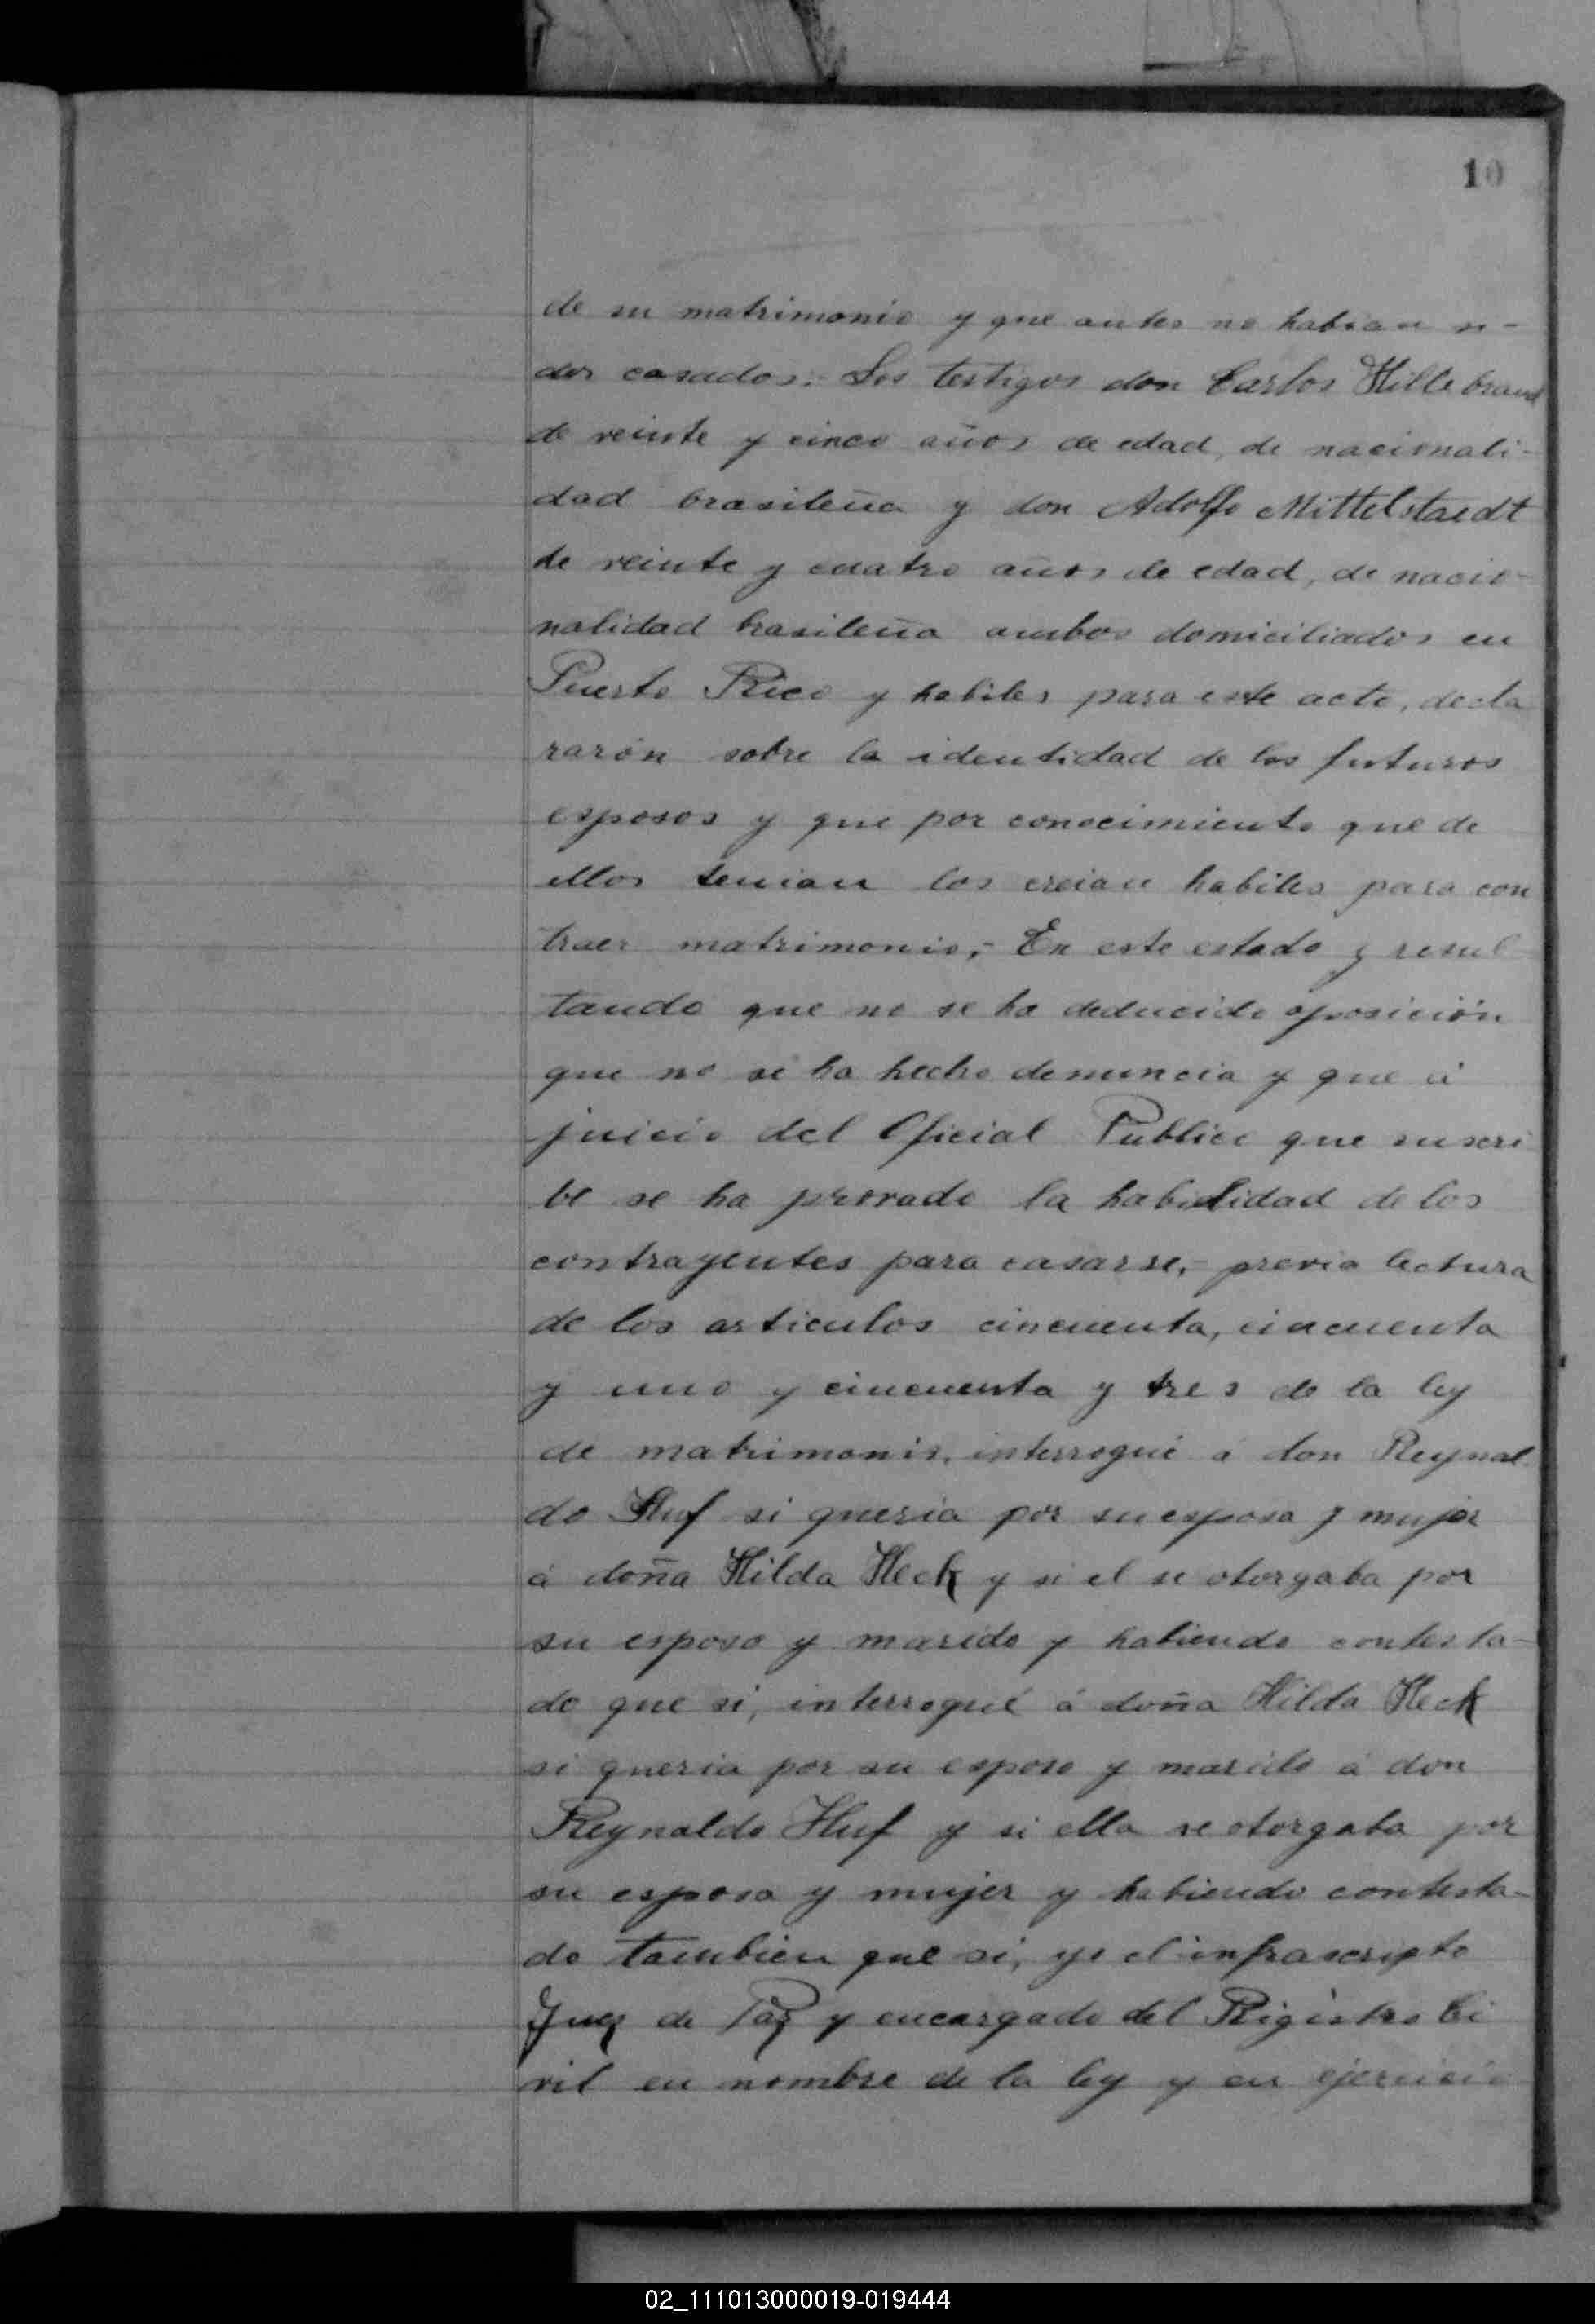 10
de su matrimonio y que antes no habian si-
dos casados.- Los testigos don Carlos Hillebrand
de veinte y cinco años de edad, de nacionali-
dad brasileña y don Adolfo Mittelstaedt
de veinte y cuatro años de edad, de nacio-
nalidad brasileña ambos domiciliados en
Puerto Rico y habiles para este acto, decla
rarón sobre la identidad de los futuros
esposos y que por conocimiento que de
ellos tenian los creian habiles para con
traer matrimonio,- En este estado y resul
tando que no se ha deducido oposición
que no se ha hecho denuncia y que á
juicio del Oficial Publico que suscri
be se ha provado la habilidad de los
contrayentes para casarse,- previa lectura
de los articulos cincuenta, cincuenta
y uno y cincuenta y tres de la ley
de matrimonio, interrogué á don Reynal
do Huf si queria por su esposa y mujer
á doña Hilda Heck y si el se otorgaba por
su esposo y marido y habiendo contesta-
do que si, interrogué á doña Hilda Heck
si queria por su esposo y marido á don
Reynaldo Huf y si ella se otorgaba por
su esposa y mujer y habiendo contesta-
do tambien que si, yo el infrascripto
Juez de Paz y encargado del Rigistro Ci
vil en nombre de la ley y en ejercicio
02_111013000019-019444